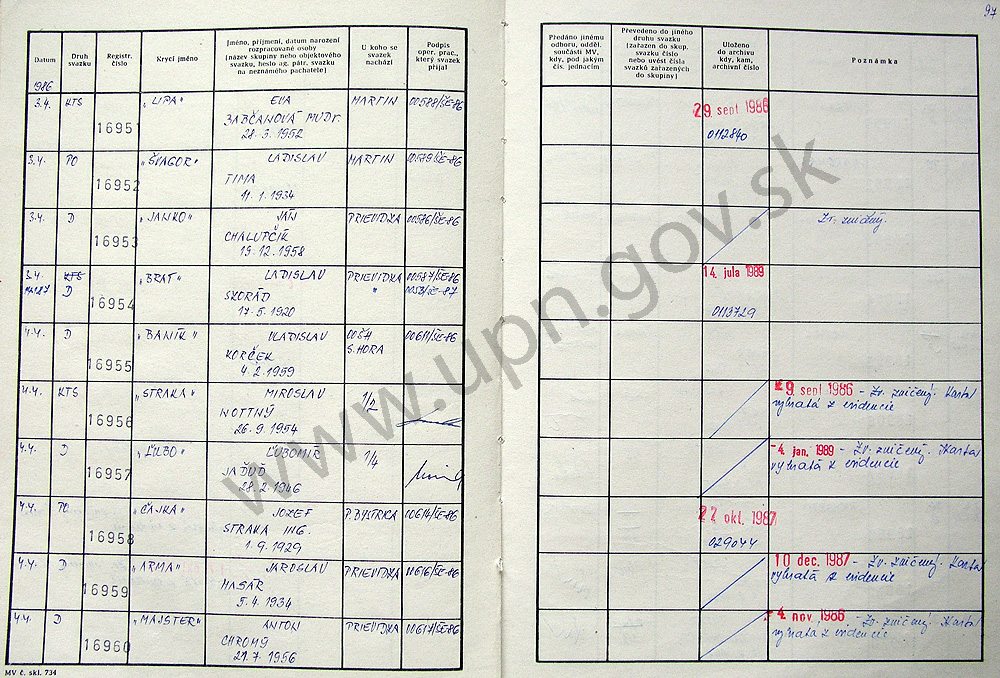 97
Datum
Druh svazku
Registr. číslo
Krycí jméno
Jméno, příjmení, datum narození
rozpracované osoby
(název skupiny nebo objektového
svazku, heslo ag. pátr. svazku
na neznámého pachatele)
U koho se
svazek
nachází
Podpis
oper. prac.,
který svazek
přijal
Předáno jinému
odboru, odděl.
součásti MV,
kdy, pod jakým
čís. jednacím
Převedeno do jiného
druhu svazku
(zařazen do skup.
svazku číslo
nebo uvést čísla
svazků zařazených
do skupiny)
Uloženo
do archivu
kdy, kam,
archivní číslo
Poznámka
1986
3.4. KTS 16951 "LIPA" EVA MARTIN 00588/ŠE-86 29. sept 1986
BABČANOVÁ MUDr.
28.3.1952 0112840
3.4. PO 16952 "ŠVAGOR" LADISLAV MARTIN 00579/ŠE-86
TIMA
11.1.1934
3.4. D 16953 "JANKO" JÁN PRIEVIDZA 00576/ŠE-86 Zv. zničený.
CHALUPČÍK
19.12.1958
3.4. KTS 16954 "BRAT" LADISLAV PRIEVIDZA 00587/ŠE-86 14. júla 1989
D "
17.5.1920 0113729
4.4. D 16955 "BANÍK" VLADISLAV 00611/ŠE-86
KORČEK S. HORA
4.2.1959
4.4. KTS 16956 "STRAKA" MIROSLAV 1/2 9. sept 1986 - Zv. zničený. Karta
NOTTNÝ vybratá z evidencie
26.9.1954
4.4. D 16957 "ĽUBO" ĽUBOMÍR 1/4 -4. jan. 1989 - Zv. zničený. Karta
vybratá z evidencie
28.2.1946
4.4. PO 16958 "ČAJKA" JOZEF P. BYSTRICA 00614/ŠE-86 22 okt. 1987
STRAKA ING.
1.9.1929 029044
4.4. D 16959 "ARMA" JAROSLAV PRIEVIDZA 00616/ŠE-86 10 dec. 1987 - Zv. zničený. Karta
MASÁR vybratá z evidencie
5.4.1934
4.4. D 16960 "MAJSTER" ANTON PRIEVIDZA 00617/ŠE-86 -4. nov 1986 - Zv. zničený. Karta
CHROMÝ vybratá z evidencie
21.7.1956
MV č. skl. 734
www.upn.gov.sk